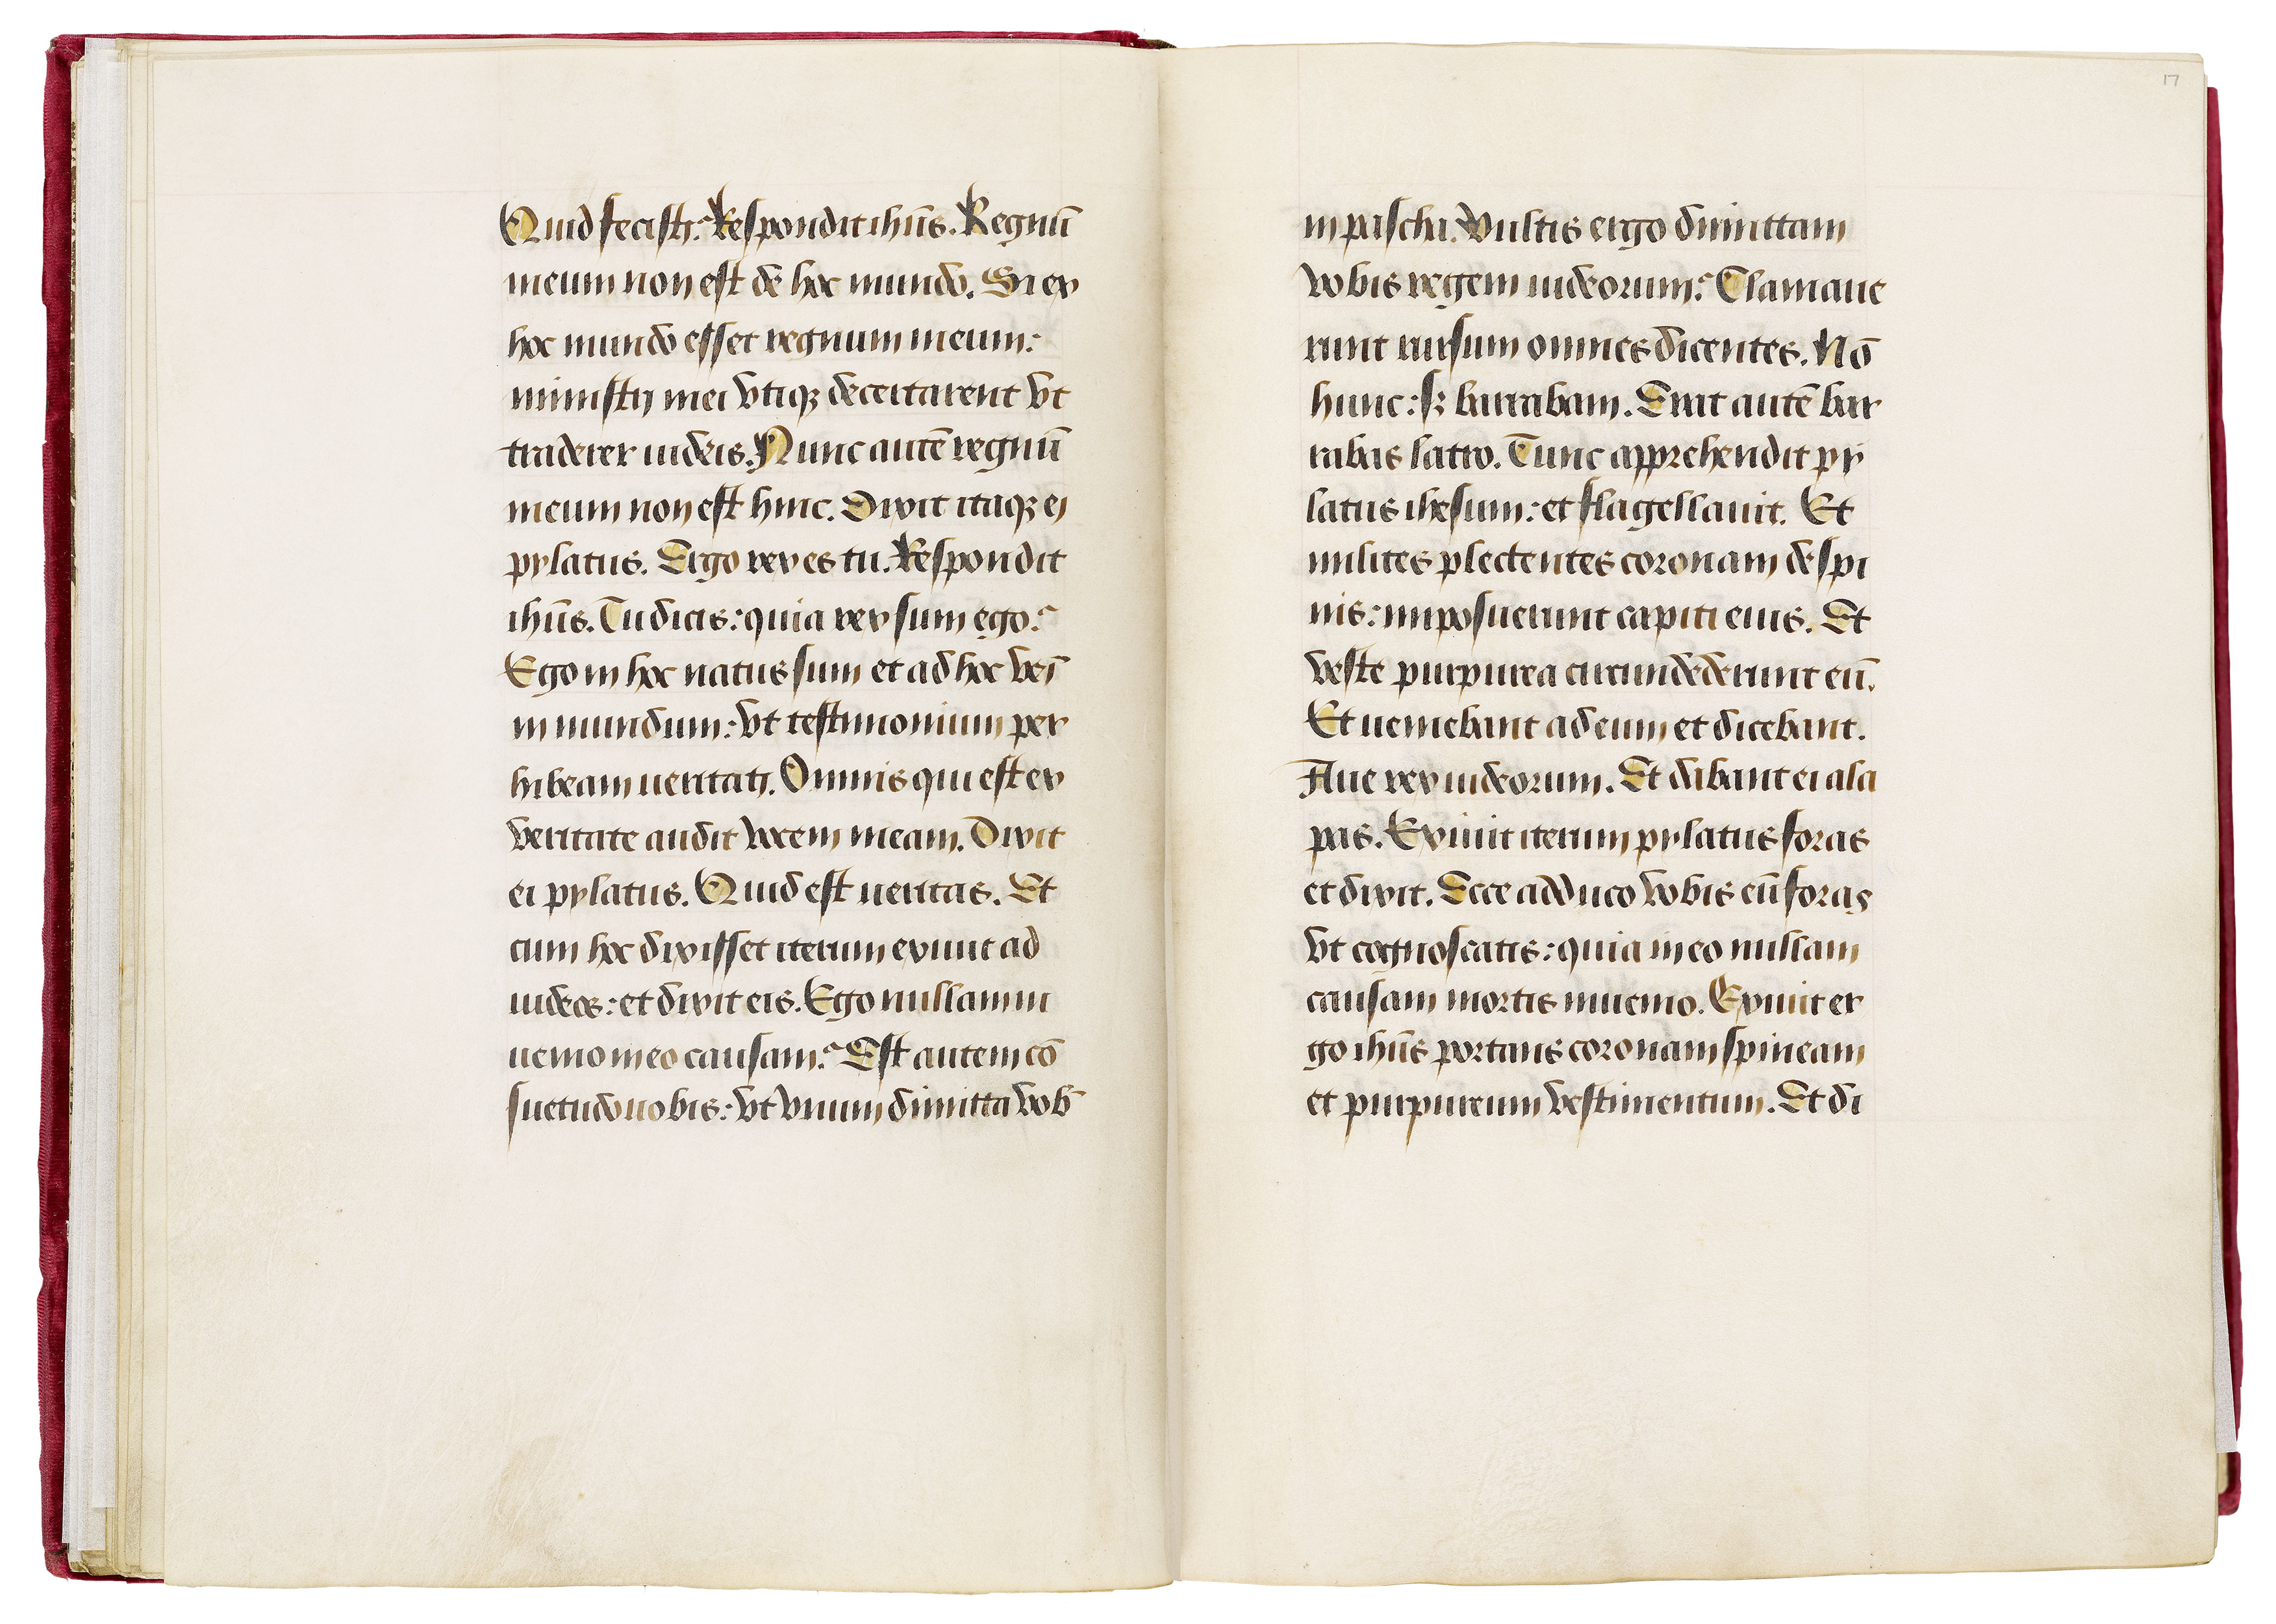 Quid fecisti? Respondit ihūs. Regnū
meum non est de hoc mundo. Si ex
hoc mundo esset regnum meum:
ministrj mei vtiqꝫ decertarent vt
traderer iudeis. Nunc autē regnū
meum non est hinc. Dixit itaqꝫ ej
pylatus. Ergo rex es tu. Respondit
ihūs. Tu dicis: quia rex sum ego?
Ego in hoc natus sum et ad hoc venī
in mundum: vt testimonium per
hibeam ueritatj. Omnis qui est ex
veritate audit vocem meam. Dixit
ei pylatus. Quid est ueritas. Et
cum hoc dixisset iterum exiuit ad
iudeos: et dixit eis. Ego nullam in
uenio in eo causam? Est autem cō
suetudo uobis: vt vnum dimittā vob̄
17
in pascha. Vultis ergo dimittam
vobis regem iudeorum? Clamaue
runt rursum omnes dicentes. Nō
hunc: sꝫ barrabam. Erat autē bar
rabas latro. Tunc apprehendit py
latus ihesum: et flagellauit. Et
milites plectentes coronam de spi
nis: imposuerunt capiti eius. Et
veste purpurea circundederunt eū.
Et ueniebant ad eum et dicebant.
Aue rex iudeorum. Et dabant ei ala
pas. Exiuit iterum pylatus foras
et dixit. Ecce adduco vobis eū foras
vt cognoscatis: quia in eo nullam
causam mortis inuenio. Exiuit er
go ihūs portans coronam spineam
et purpureum vestimentum. Et di